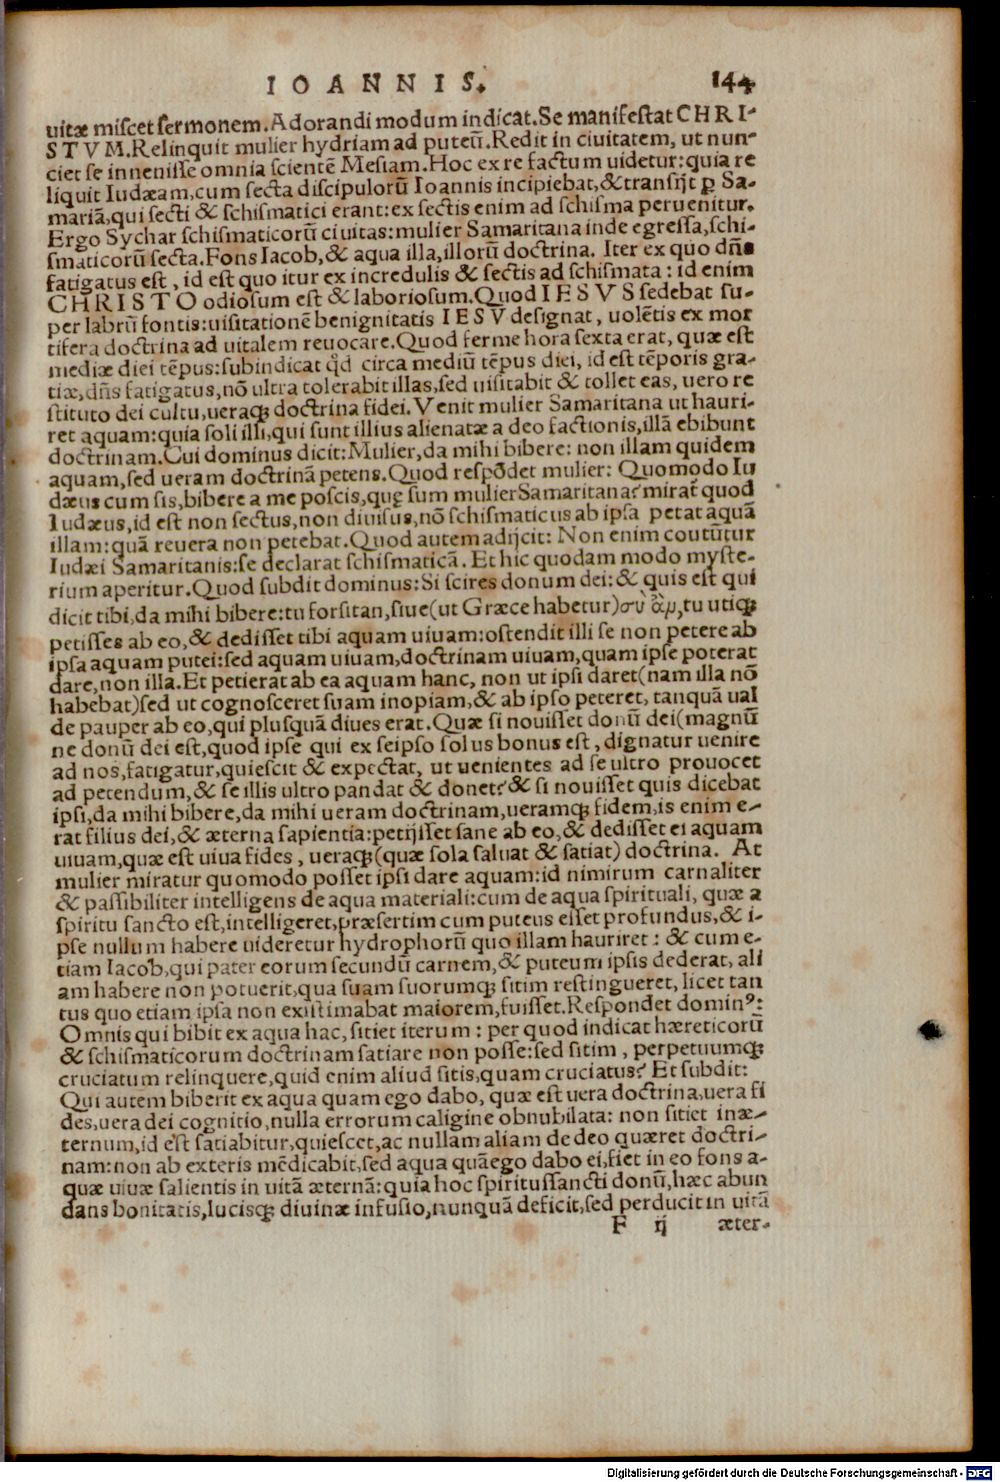 IOANNIS. 144
uitæ miscet sermonem. Adorandi modum indicat. Se manifestat CHRI-
STVM. Relinquit mulier hydriam ad puteū. Redit in ciuitatem, ut nun-
ciet se innenisse omnia scientē Mesiam. Hoc ex re factum uidetur: quia re
liquit Iudæam, cum secta discipulorū Ioannis incipiebat, & transijt ꝑ Sa-
mariā, qui secti & schismatici erant: ex sectis enim ad schisma peruenitur.
Ergo Sychar schismaticorū ciuitas: mulier Samaritana inde egressa, schi-
smaticorū secta. Fons Iacob, & aqua illa, illorū doctrina. Iter ex quo dn̄s
fatigatus est, id est quo itur ex incredulis & sectis ad schismata: id enim
CHRISTO odiosum est & laboriosum. Quod IESVS sedebat su-
per labrū fontis: uisitationē benignitatis IESV designat, uolētis ex mor
tifera doctrina ad uitalem reuocare. Quod ferme hora sexta erat, quæ est
mediæ diei tēpus: subindicat qd̄ circa mediū tēpus diei, id est tēporis gra-
tiæ, dn̄s fatigatus, nō ultra tolerabit illas, sed uisitabit & tollet eas, uero re
stituto dei cultu, ueraq; doctrina fidei. Venit mulier Samaritana ut hauri-
ret aquam: quia soli illi, qui sunt illius alienatæ a deo factionis, illā ebibunt
doctrinam. Cui dominus dicit: Mulier, da mihi bibere: non illam quidem
aquam, sed ueram doctrinā petens. Quod respōdet mulier: Quomodo Iu
dæus cum sis, bibere a me poscis, quę sum mulier Samaritana? mirat̄ quod
Iudæus, id est non sectus, non diuisus, nō schismaticus ab ipsa petat aquā
illam: quā reuera non petebat. Quod autem adijcit: Non enim coutūtur
Iudæi Samaritanis: se declarat schismaticā. Et hic quodam modo myste-
rium aperitur. Quod subdit dominus: Si scires donum dei: & quis est qui
dicit tibi, da mihi bibere: tu forsitan, siue (ut Græce habetur) σὺ ἂμ, tu utiq;
petisses ab eo, & dedisset tibi aquam uiuam: ostendit illi se non petere ab
ipsa aquam putei: sed aquam uiuam, doctrinam uiuam, quam ipse poterat
dare, non illa. Et petierat ab ea aquam hanc, non ut ipsi daret (nam illa nō
habebat) sed ut cognosceret suam inopiam, & ab ipso peteret, tanquā ual
de pauper ab eo, qui plusquā diues erat. Quæ si nouisset donū dei (magnū
ne donū dei est, quod ipse qui ex seipso solus bonus est, dignatur uenire
ad nos, fatigatur, quiescit & expectat, ut uenientes ad se ultro prouocet
ad petendum, & se illis ultro pandat & donet? & si nouisset quis dicebat
ipsi, da mihi bibere, da mihi ueram doctrinam, ueramq; fidem, is enim e-
rat filius dei, & æterna sapientia: petijsset sane ab eo, & dedisset ei aquam
uiuam, quæ est uiua fides, ueraq; (quæ sola saluat & satiat) doctrina. At
mulier miratur quomodo posset ipsi dare aquam: id nimirum carnaliter
& passibiliter intelligens de aqua materiali: cum de aqua spirituali, quæ a
spiritu sancto est, intelligeret, præsertim cum puteus esset profundus, & i-
pse nullum habere uideretur hydrophorū quo illam hauriret: & cum e-
tiam Iacob, qui pater eorum secundū carnem, & puteum ipsis dederat, ali
am habere non potuerit, qua suam suorumq; sitim restingueret, licet tan
tus quo etiam ipsa non existimabat maiorem, fuisset. Respondet dominꝰ:
Omnis qui bibit ex aqua hac, sitiet iterum: per quod indicat hæreticorū
& schismaticorum doctrinam satiare non posse: sed sitim, perpetuumq;
cruciatum relinquere, quid enim aliud sitis, quam cruciatus? Et subdit:
Qui autem biberit ex aqua quam ego dabo, quæ est uera doctrina, uera fi
des, uera dei cognitio, nulla errorum caligine obnubilata: non sitiet inæ-
ternum, id est satiabitur, quiescet, ac nullam aliam de deo quæret doctri-
nam: non ab exteris mēdicabit, sed aqua quā ego dabo ei, fiet in eo fons a-
quæ uiuæ salientis in uitā æternā: quia hoc spiritussancti donū, hæc abun
dans bonitatis, lucisq; diuinæ infusio, nunquā deficit, sed perducit in uitā
F ij æter-
Digitalisierung gefördert durch die Deutsche Forschungsgemeinschaft - DFG